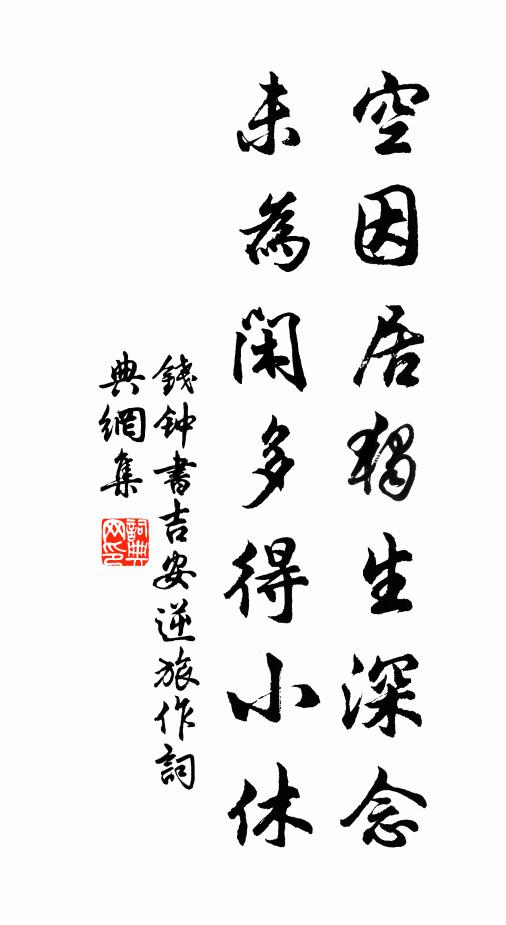 空因居獨生深念
未為閑多得小休
錢鈡書吉安逆旅作詞
典網集
詞典網印